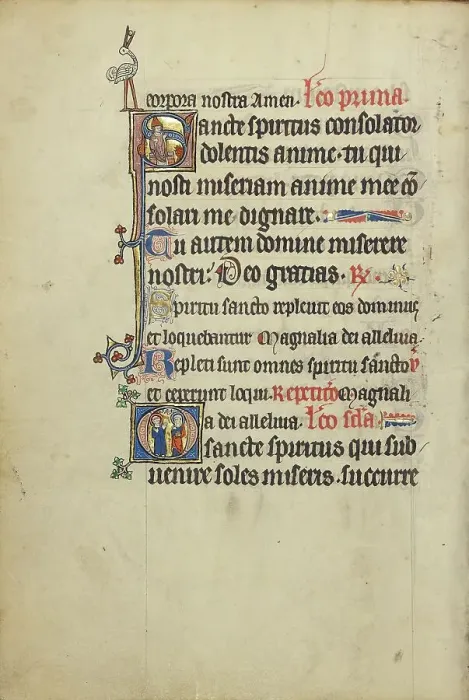 corpora nostra Amen. Lco prima.
Sancte spiritus consolator
dolentis anime. tu qui
nosti miseriam anime mee cō
solari me dignare.
Tu autem domine miserere
nostri. Deo gratias. R
Spiritu sancto repleuit eos dominus
et loquebantur Magnalia dei alleluia.
Repleti sunt omnes spiritu sancto v
et ceperunt loqui. Repeticō Magnali
a dei alleluia. Lco scda
O sancte spiritus qui sub
uenire soles miseris. succurre